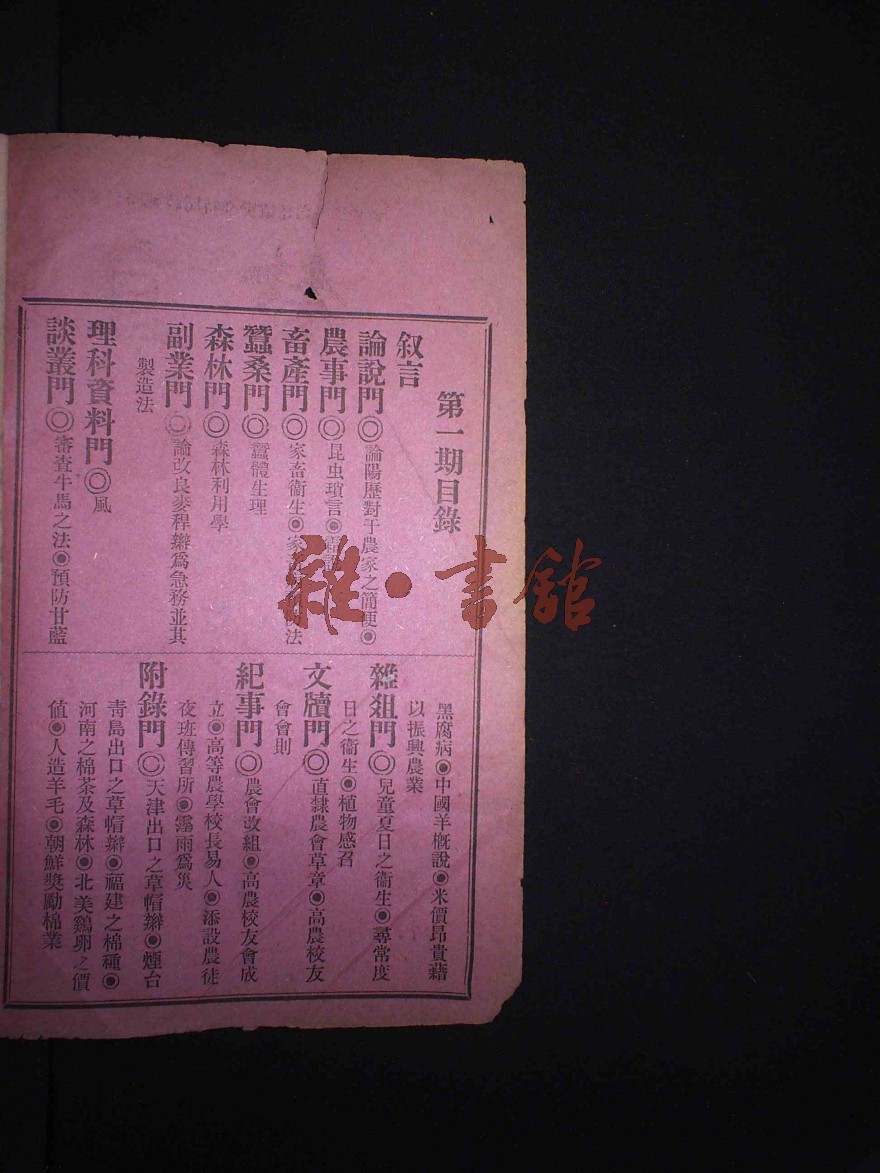 第一期目錄
叙言
論說門◎論陽歷對于農家之簡便◉
農事門◎昆虫瑣言◉
畜產門◎家畜衞生◉家 法
蠶桑門◎蠶體生理
森林門◎森林利用學
副業門◎論改良麥稈辮爲急務並其
製造法
理科資料門◎風
談叢門◎審查牛馬之法◉預防甘藍
黑腐病◉中國羊概說◉米價昂貴藉
以振興農業
雜爼門◎兒童夏日之衞生◉尋常度
日之衞生◉植物感召
文牘門◎直隸農會草章◉高農校友
會會則
紀事門◎農會改組◉高農校友會成
立◉高等農學校長易人◉添設農徒
夜班傳習所◉霪雨爲災
附錄門◎天津出口之草帽辮◉煙台
靑島出口之草帽辮◉福建之棉種◉
河南之棉茶及森林◉北美鷄卵之價
値◉人造羊毛◉朝鮮獎勵棉業
雜·書館